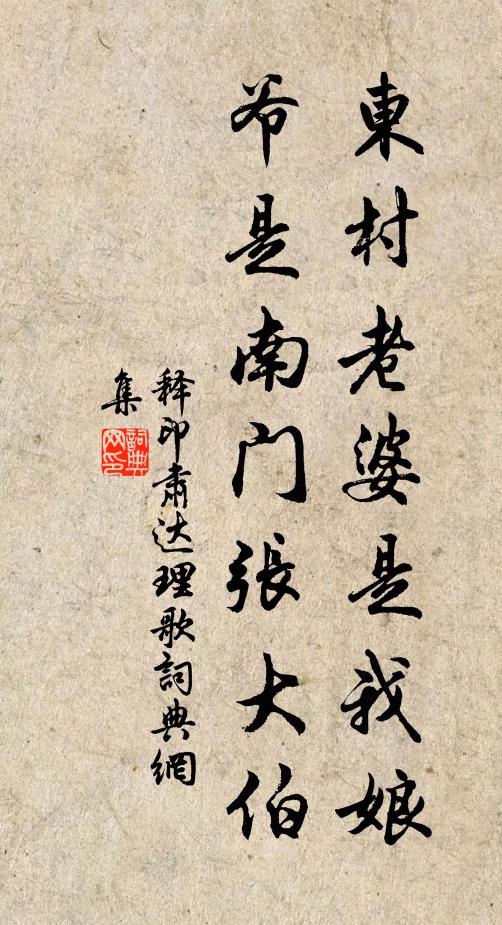 東村老婆是我娘
爷是南門張大伯
释印肃达理歌詞典網
集
詞典
网印